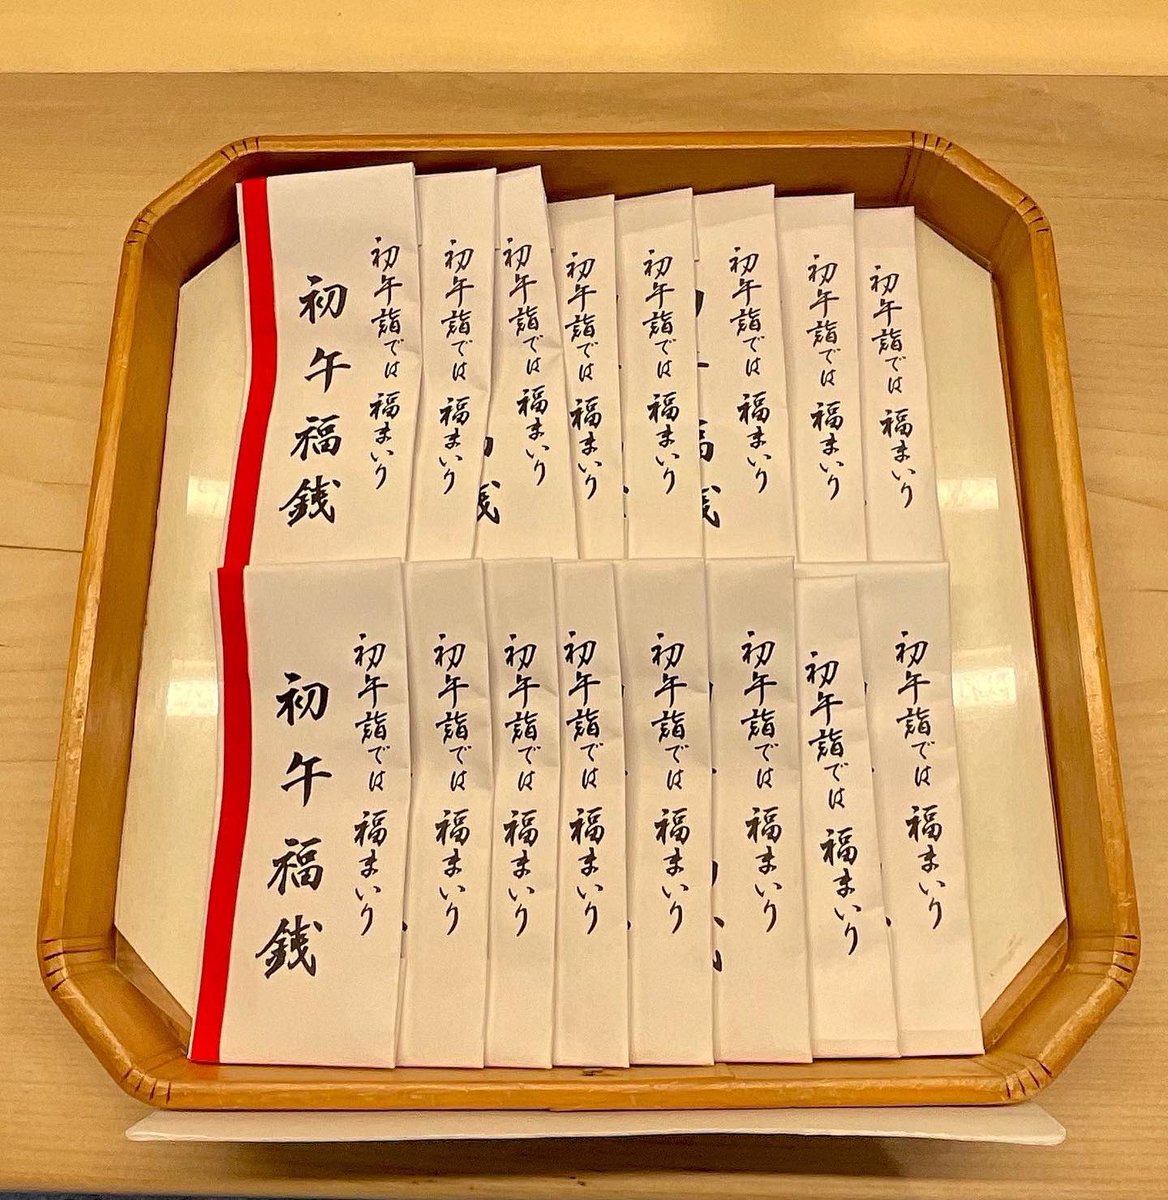 初午詣では福まいり
初午詣では福まいり
初午詣では福まいり
初午詣では福まいり
初午詣では福まいり
初午詣では福まいり
初午詣では福まいり
初午詣では福まいり
初午福銭
初午詣では福まいり
初午詣では福まいり
初午詣では福まいり
初午詣では福まいり
初午詣では福まいり
初午詣では福まいり
初午詣では福まいり
初午詣では福まいり
初午福銭